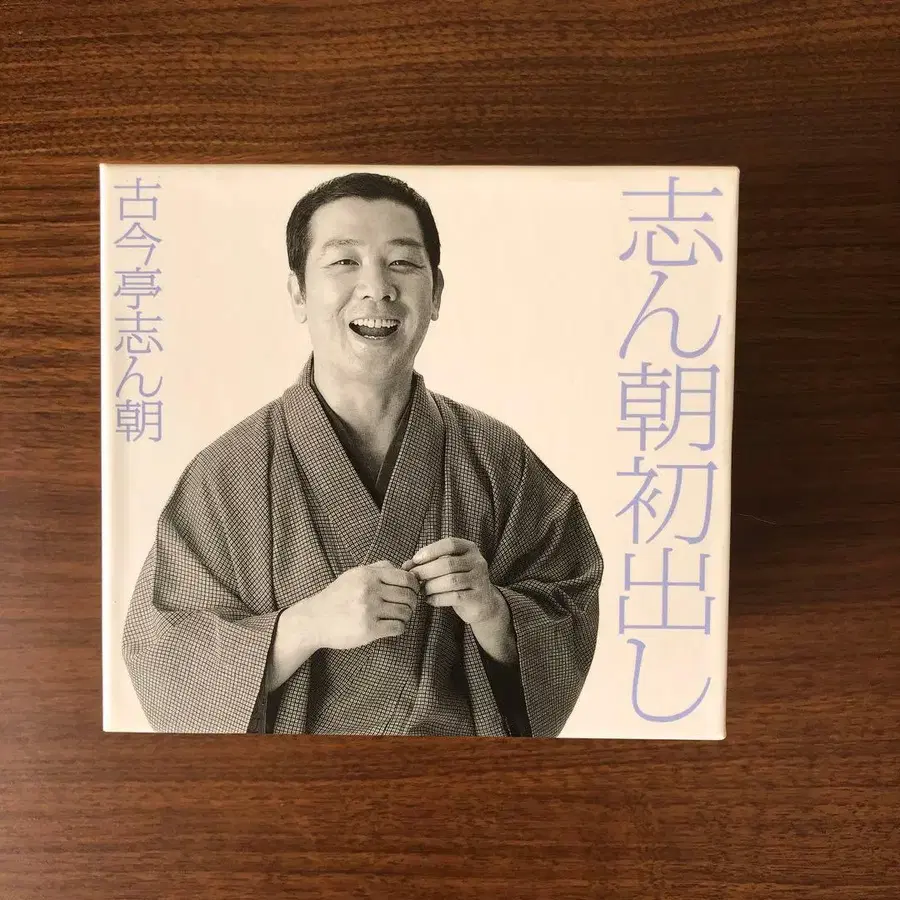 志ん朝初出し
古今亭志ん朝